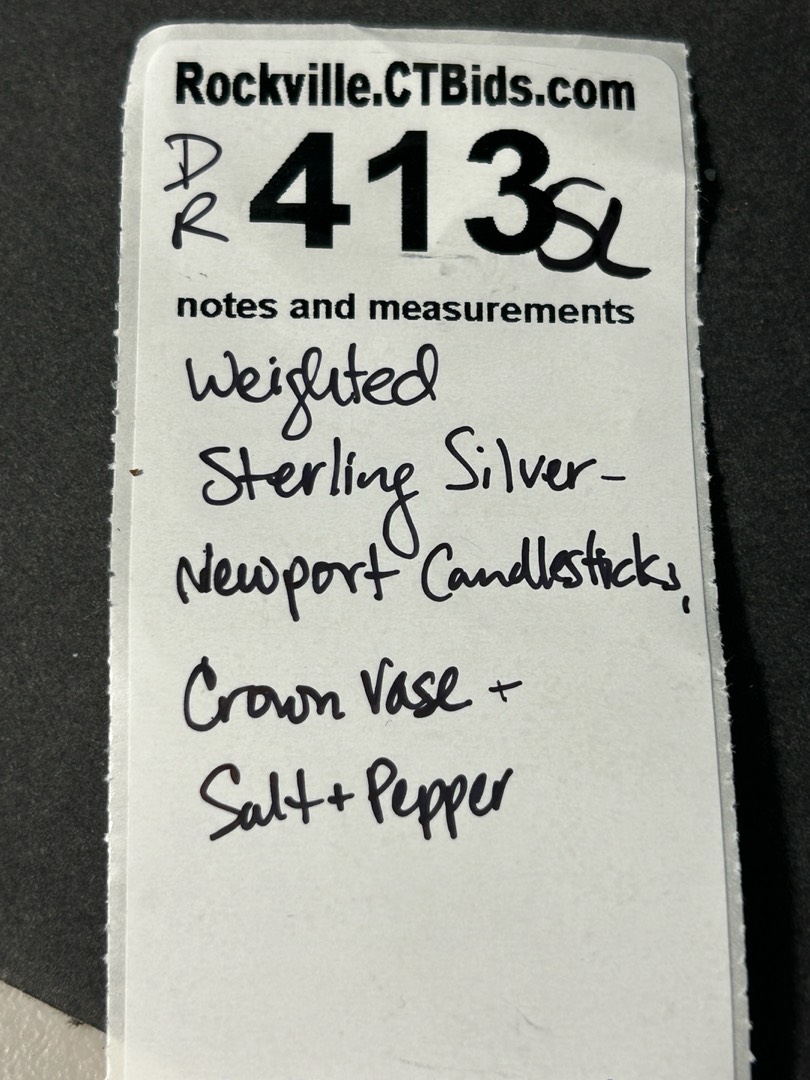 Rockville.CTBids.com
DR 413 SL
notes and measurements
Weighted
Sterling Silver-
Newport Candlesticks,
Crown Vase +
Salt + Pepper